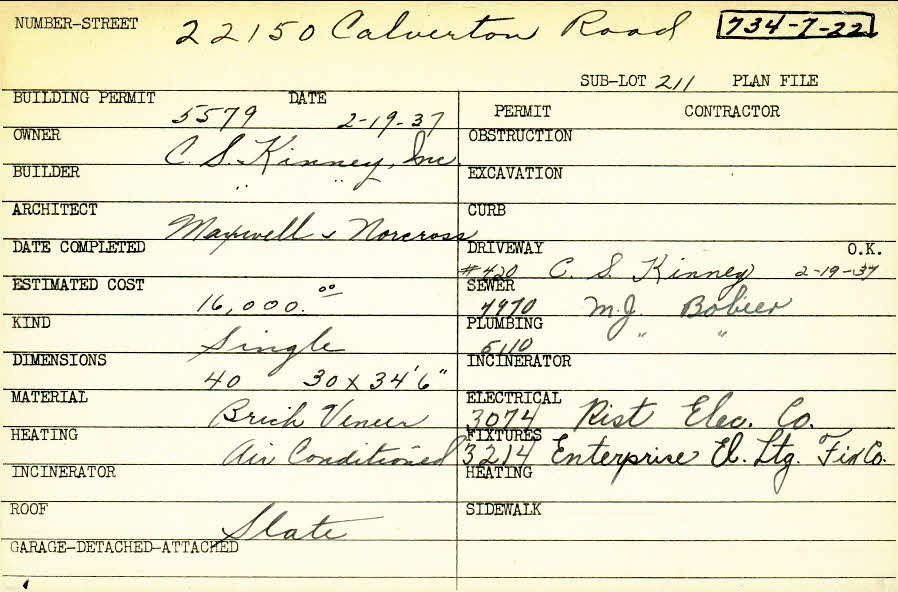 NUMBER-STREET 22150 Calverton Road 734-7-22
SUB-LOT 211 PLAN FILE
BUILDING PERMIT 5579 DATE 2-19-37
PERMIT CONTRACTOR
OWNER C. S. Kinney, Inc.
OBSTRUCTION
BUILDER " "
EXCAVATION
ARCHITECT Maxwell & Norcross
CURB
DATE COMPLETED
DRIVEWAY O.K.
#420 C. S. Kinney 2-19-37
ESTIMATED COST 16,000.00
SEWER
4970 M.J. Bobier
KIND Single
PLUMBING " "
5110
DIMENSIONS 40 30 x 34'6"
INCINERATOR
MATERIAL Brick Veneer
ELECTRICAL
3074 Rist Elec. Co.
HEATING Air Conditioned
FIXTURES
3214 Enterprise El. Ltg. Fix Co.
INCINERATOR
HEATING
ROOF Slate
SIDEWALK
GARAGE-DETACHED-ATTACHED